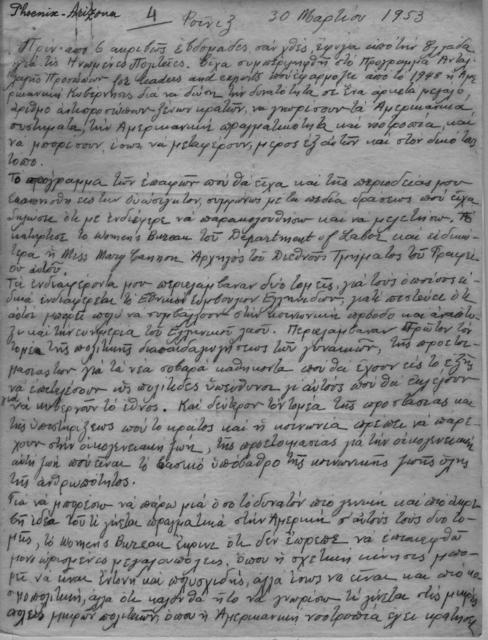 Phoenix - Arizona 4 Φοίνιξ 30 Μαρτίου 1953
Πριν από 6 ακριβώς εβδομάδες σαν χθές, έφυγα από την Ελλάδα
για τις Ηνωμένες Πολιτείες. Είχα συμπεριληφθή στο Πρόγραμμα Ανταλ
λαγής Προσώπων for leaders and experts που εφαρμόζει από το 1948 η Αμε
ρικανική Κυβέρνησις διά να δώση την δυνατότητα σε ένα αρκετά μεγάλο,
αριθμό αντιπροσώπων ξένων κρατών, να γνωρίσουν τα Αμερικανικά
συστήματα, την Αμερικανική πραγματικότητα και νοοτροπία, και
να μπορέσουν, ίσως να μεταφέρουν, μέρος εξ αυτών και στον δικό τους
τόπο.
Το πρόγραμμα των επαφών που θα είχα και της περιοδείας μου
εις την Ουάσιγκτον, συμφώνως με τα πεδία δράσεως που είχα
δηλώσει ότι με ενδιέφερε να παρακολουθήσω και να μελετήσω. Το
κατήρτισε το Women's Bureau του Department of Labor και ειδικώ
τερα η Miss Mary Cannon Αρχηγός του Διεθνούς Τμήματος του Γραφεί
ου αυτού.
Τα ενδιαφέροντα μου περιελάμβαναν δύο τομείς, για τους οποίους ει
δικά ενδιαφέρεται το Εθνικόν Συμβούλιον Ελληνίδων, γιατί πιστεύει ότι
αυτοί μπορεί πολύ να συμβάλλουν στην κοινωνική πρόοδο και ανάπτυ
ξι και την ευημερία του Ελληνικού λαού. Περιελάμβαναν Πρώτον τον
τομέα της πολιτικής διαπαιδαγωγήσεως των γυναικών, της προετοι
μασίας των για τα νέα σοβαρά καθήκοντα που θα έχουν εις το εξής
να επιτελέσουν ως πολίτιδες υπεύθυνοι γι αυτούς που θα εκλέγουν
για να κυβερνούν το έθνος. Και δεύτερον τον τομέα της προστασίας και
της υποστηρίξεως που το κράτος και η κοινωνία πρέπει να παρέ
χουν στην οικογενειακή ζωή, της προετοιμασίας για την οικογενειακή
αυτή ζωή που είναι το βασικό υπόβαθρο της κοινωνικής ζωής όλης
της ανθρωπότητος.
Για να μπορέσω να πάρω μιά όσο το δυνατόν πιο γενική και πιο ακρι
βή ιδέα του τι γίνεται πραγματικά στην Αμερική σ' αυτούς τους δύο το
μείς, το Women's Bureau έκρινε ότι δεν έπρεπε να επισκεφθώ
μόνον ωρισμένες μεγαλουπόλεις, όπου η σχετική κίνησις μπο
ρεί να είναι έντονη και πολυσχιδής, αλλά ίσως να είναι και από κο
σμοπολιτική, αλλά ότι καλόν θα ήτο να γνωρίσω τι γίνεται στις μικρές
πόλεις μικρών πολιτειών, όπου η Αμερικανική νοοτροπία έχει κρατηθεί